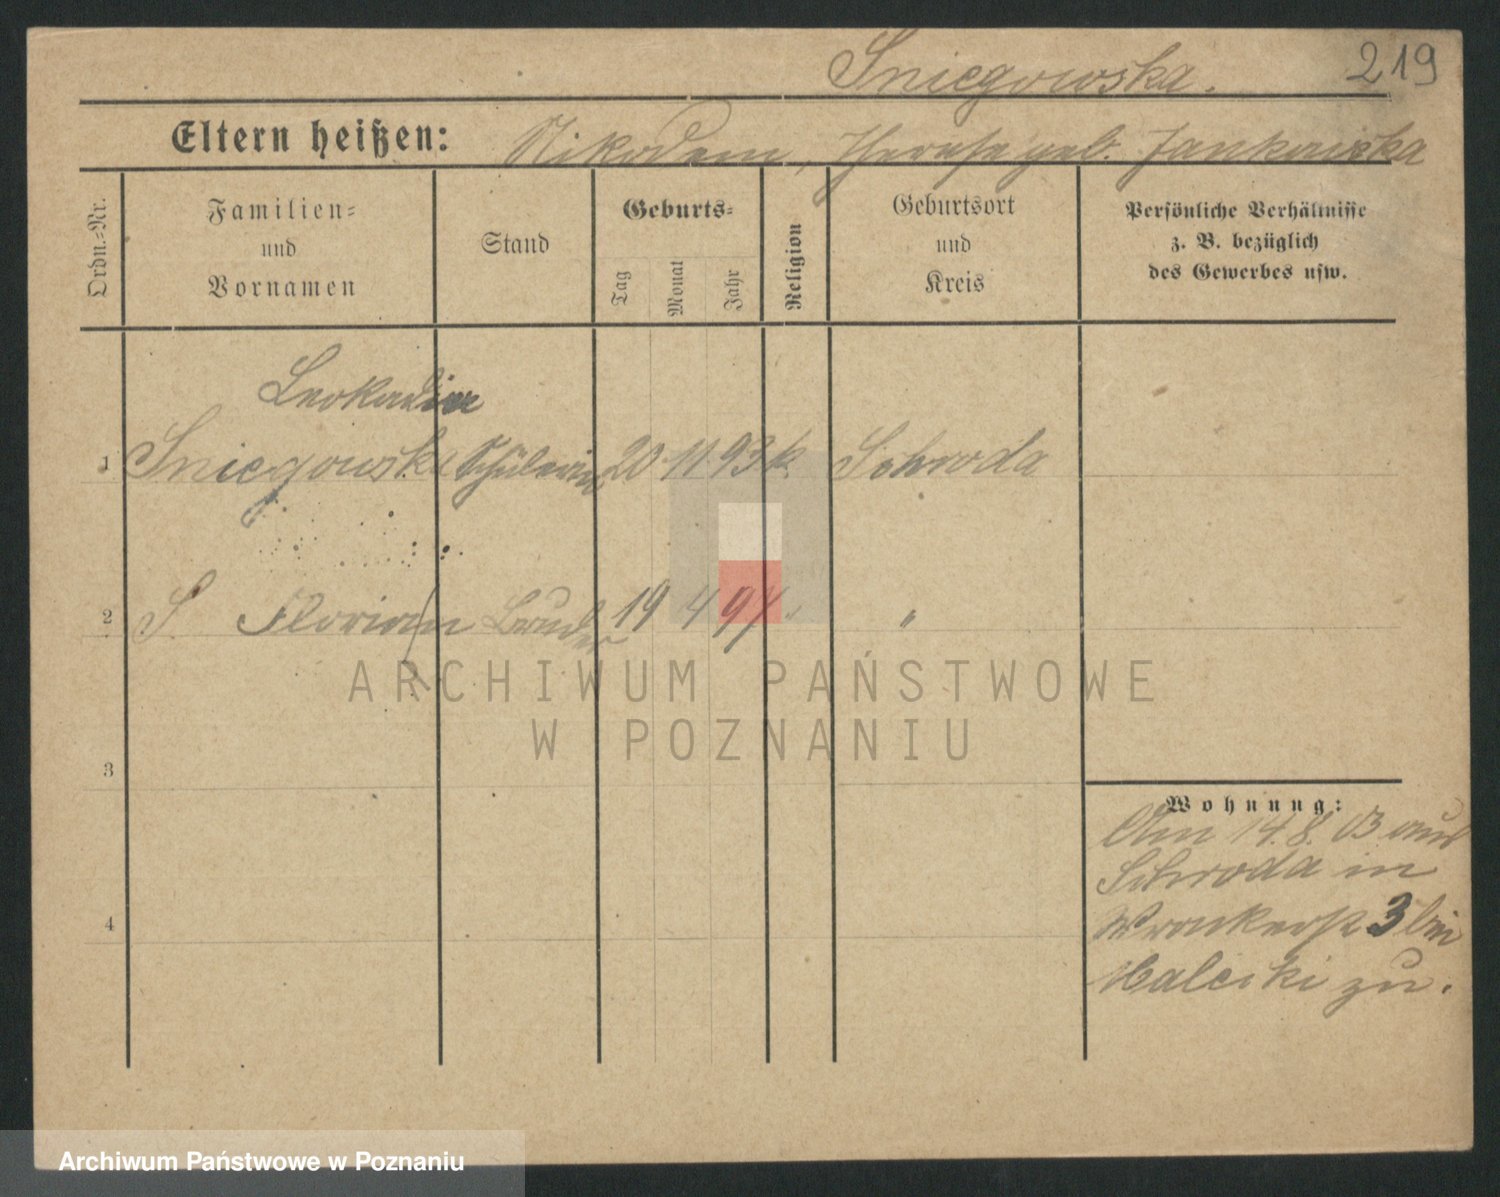 Sniegowska. 219
Eltern heißen: Nikodem, Therese geb. Jankowska
Ordn.-Nr.
Familien-
und
Vornamen
Stand
Geburts-
Tag
Monat
Jahr
Religion
Geburtsort
und
Kreis
Persönliche Verhältnisse
z. B. bezüglich
des Gewerbes usw.
Leokadia
1 Sniegowska Schülerin 20 11 93 k. Schroda
2 S Florian Bruder 19 4 97 "
3
4
Wohnung:
Am 14.8.03 aus
Schroda in
Wronkerstr 3 bei
zu.
ARCHIWUM PAŃSTWOWE
W POZNANIU
Archiwum Państwowe w Poznaniu